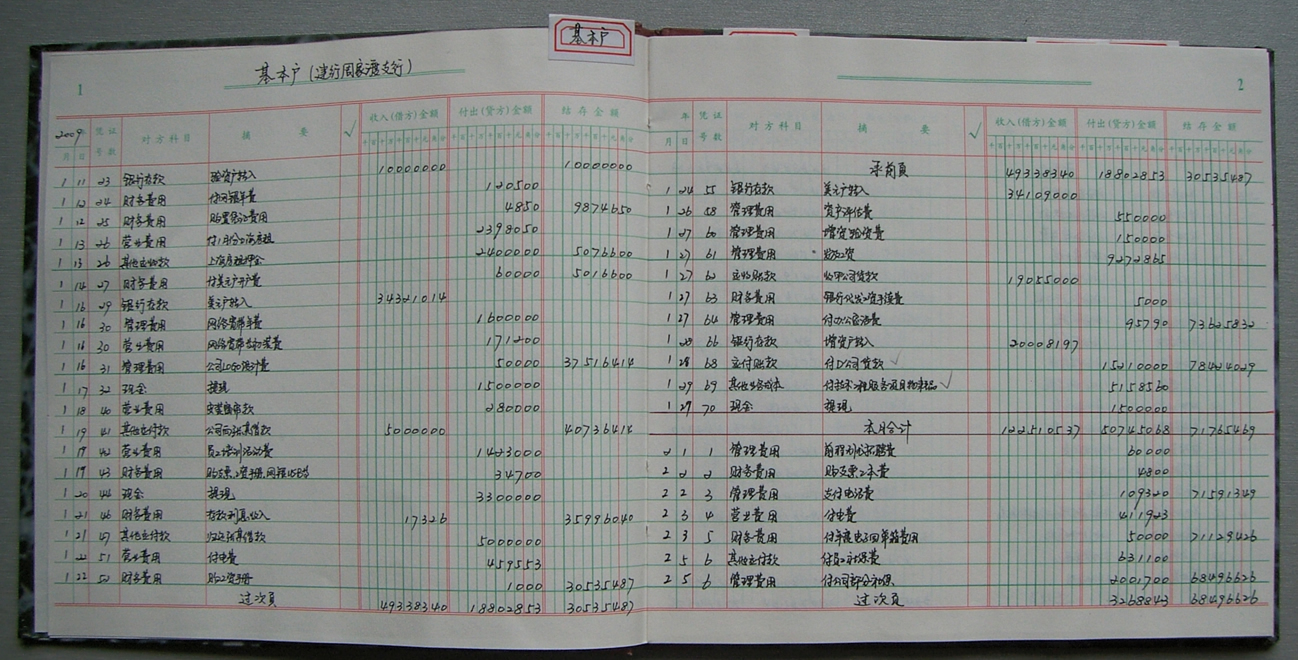 基本户
基本户(建行周家渡支行)
1
2009 凭证 对方科目 摘要 √ 收入(借方)金额 付出(贷方)金额 结存金额
月 日 号数
1 11 23 银行存款 验资户转入 10000000 10000000
1 12 24 财务费用 120500
1 12 25 财务费用 4850 9874650
1 13 26 营业费用 2398050
1 13 26 其他应收款 2400000 5076600
1 14 27 财务费用 付美元户开户费 60000 5016600
1 16 29 银行存款 美元户转入 34321014
1 16 30 管理费用 1600000
1 16 30 营业费用 171200
1 16 31 管理费用 50000 37516414
1 17 32 现金 提现 1500000
1 18 40 营业费用 280000
1 19 41 其他应付款 5000000 40736414
1 19 42 营业费用 员工培训活动费 1423000
1 19 43 财务费用 34700
1 20 44 现金 提现 3300000
1 21 46 财务费用 存款利息收入 17326 35996040
1 21 47 其他应付款 5000000
1 22 51 营业费用 付电费 459553
1 22 52 财务费用 购工资手册 1000 30535487
过次页 49338340 18802853 30535487
2
年 凭证 对方科目 摘要 √ 收入(借方)金额 付出(贷方)金额 结存金额
月 日 号数
承前页 49338340 18802853 30535487
1 24 55 银行存款 美元户转入 34109000
1 26 58 管理费用 资产评估费 550000
1 27 60 管理费用 增资验资费 150000
1 27 61 管理费用 发放工资 9272865
1 27 62 应收账款 收甲公司货款 19055000
1 27 63 财务费用 银行代发工资手续费 5000
1 27 64 管理费用 付办公室话费 95790 73625832
1 28 66 银行存款 增资户转入 20008197
1 28 68 应付账款 付D公司货款 √ 15210000 78424029
1 29 69 其他业务成本 √ 5158560
1 29 70 现金 提现 1500000
本月合计 122510537 50745068 71765469
2 1 1 管理费用 60000
2 2 2 财务费用 购支票2本费 4800
2 2 3 管理费用 支付电话费 109320 71591349
2 3 4 营业费用 付电费 411923
2 3 5 财务费用 50000 71129426
2 5 6 其他应付款 付员工社保费 631100
2 5 6 管理费用 付公司部分社保 2001700 68496626
过次页 3268843 68496626